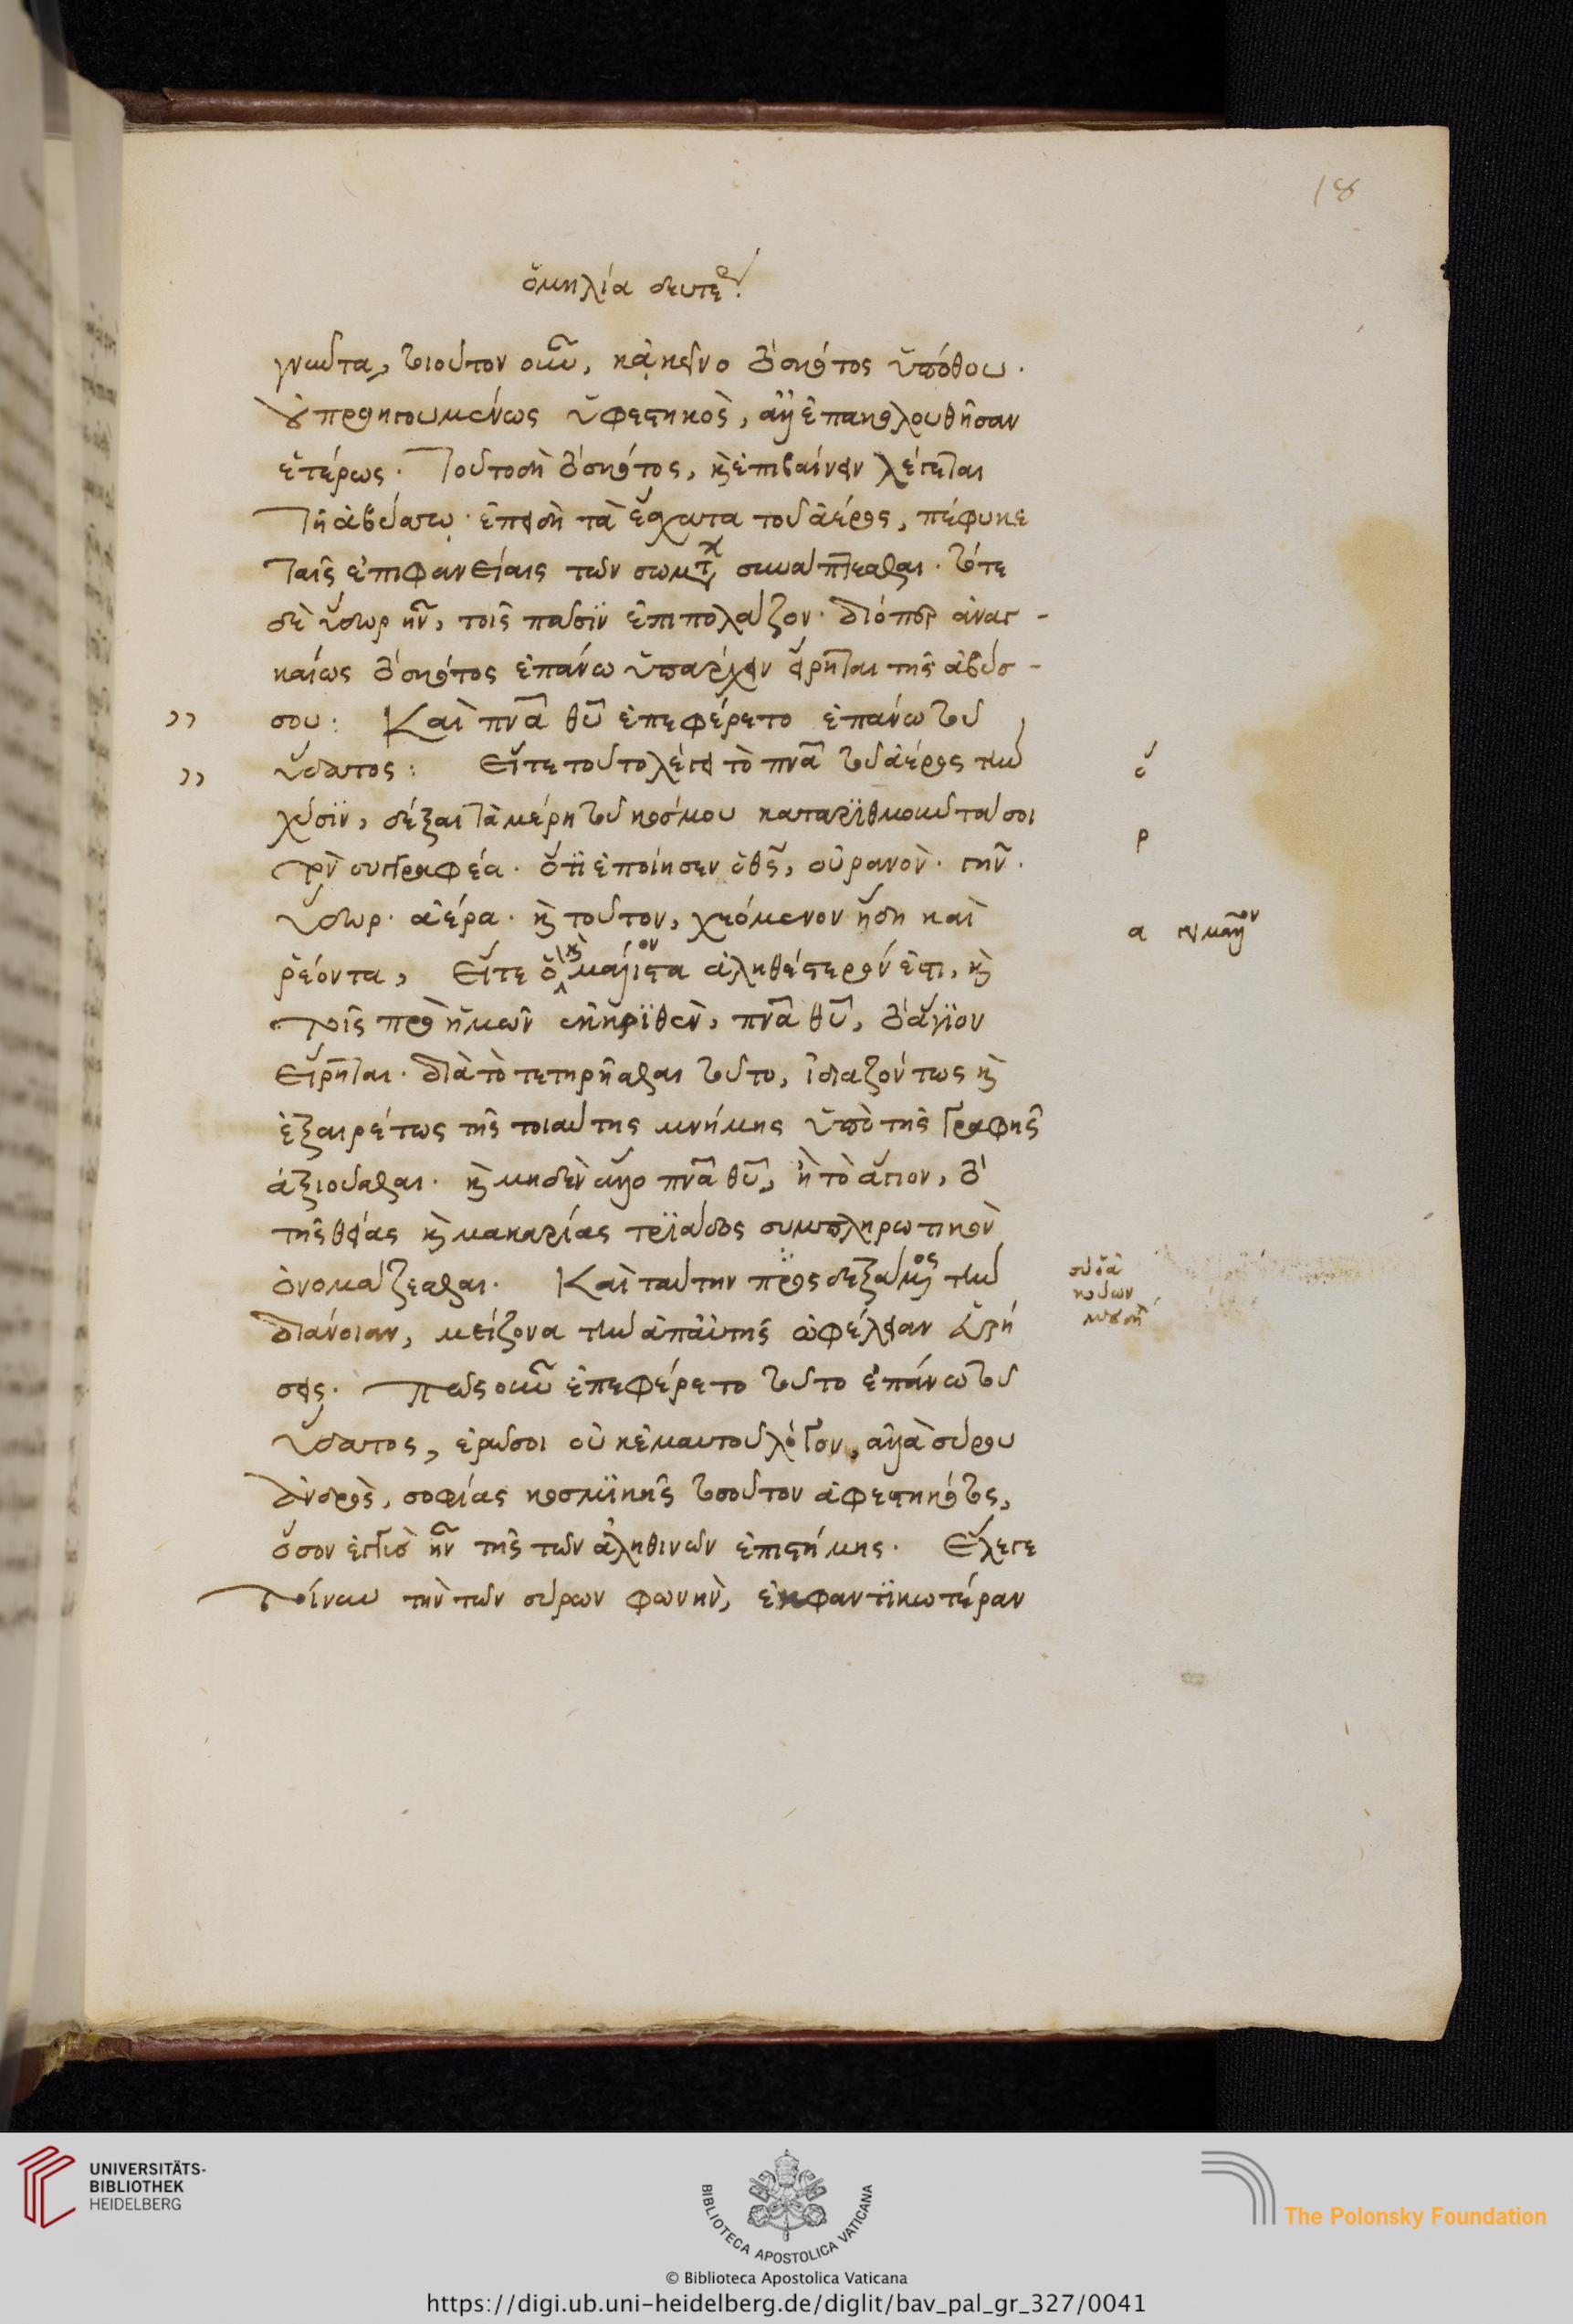 18
ὁμηλία δευτέρα
γνῶντα, τοιοῦτον οὖν, κἀκεῖνο τὸ σκότος ὑπόθου.
οὐ προηγουμένως ὑφεστηκὸς, ἀλλ' ἐπακολουθῆσαν
ἑτέρως. τοῦτο δὴ τὸ σκότος, καὶ ἐπιβαίνειν λέγεται
τῇ ἀβύσσῳ. ἐπειδὴ τὰ ἔσχατα τοῦ ἀέρος, πέφυκε
ταῖς ἐπιφανείαις τῶν σωμάτων συνάπτεσθαι. τότε
δὲ ὕδωρ ἦν, τοῖς πᾶσιν ἐπιπολάζον. διόπερ ἀναγ-
καίως τὸ σκότος ἐπάνω ὑπάρχειν εἴρηται τῆς ἀβύσ-
σου: Καὶ πνα θυ ἐπεφέρετο ἐπάνω τοῦ
ὕδατος: Εἴτε τοῦτο λέγει τὸ πνα τοῦ ἀέρος τὴν
χύσιν, δέξαι τὰ μέρη τοῦ κόσμου καταριθμοῦντά σοι
τὸν συγγραφέα. ὅτι ἐποίησεν ὁ θς, οὐρανὸν. γῆν.
ὕδωρ. ἀέρα. καὶ τοῦτον, χεόμενον ἤδη καὶ
ῥέοντα, Εἴτε ὃ καὶ μᾶλλον ἀληθέστερόν ἐστι, καὶ
τοῖς πρὸ ἡμῶν ἐγκριθὲν, πνα θυ, τὸ ἅγιον
εἴρηται. διὰ τὸ τετηρῆσθαι τοῦτο, ἰδιαζόντως καὶ
ἐξαιρέτως τῆς τοιαύτης μνήμης ὑπὸ τῆς γραφῆς
ἀξιοῦσθαι. καὶ μηδὲν ἄλλο πνα θυ, ἢ τὸ ἅγιον, τὸ
τῆς θείας καὶ μακαρίας τριάδος συμπληρωτικὸν
ὀνομάζεσθαι. Καὶ ταύτην προσδεξάμενος τὴν
διάνοιαν, μείζονα τὴν ἀπ' αὐτῆς ὠφέλειαν εὑρή
σεις. Πῶς οὖν ἐπεφέρετο τοῦτο ἐπάνω τοῦ
ὕδατος, ἐρῶ σοι οὐκ ἐμαυτοῦ λόγον, ἀλλὰ σύρου
ἀνδρὸς, σοφίας κοσμικῆς τοσοῦτον ἀφεστηκότος,
ὅσον ἐγγὺς ἦν τῆς τῶν ἀληθινῶν ἐπιστήμης. Ἔλεγε
τοίνυν τὴν τῶν σύρων φωνὴν, ἐμφαντικωτέραν
UNIVERSITÄTS-
BIBLIOTHEK
HEIDELBERG
BIBLIOTECA APOSTOLICA VATICANA
© Biblioteca Apostolica Vaticana
The Polonsky Foundation
https://digi.ub.uni-heidelberg.de/diglit/bav_pal_gr_327/0041